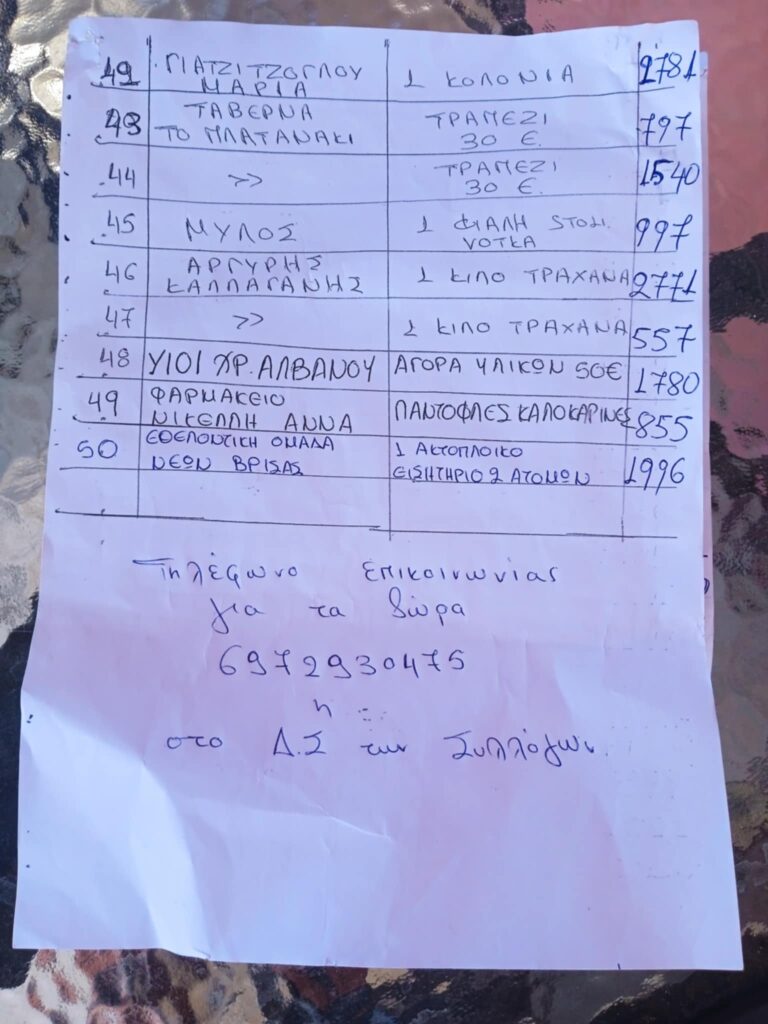 42 ΓΙΑΤΖΙΤΖΟΓΛΟΥ ΜΑΡΙΑ 1 ΚΟΛΟΝΙΑ 2781
43 ΤΑΒΕΡΝΑ ΤΟ ΠΛΑΤΑΝΑΚΙ ΤΡΑΠΕΖΙ 30 €. 797
44 >> ΤΡΑΠΕΖΙ 30 €. 1540
45 ΜΥΛΟΣ 1 ΦΙΑΛΗ STOLI VOTKA 997
46 ΑΡΓΥΡΗΣ ΚΑΛΛΑΓΑΝΗΣ 1 ΚΙΛΟ ΤΡΑΧΑΝΑ 2771
47 >> 1 ΚΙΛΟ ΤΡΑΧΑΝΑ 557
48 ΥΙΟΙ ΧΡ. ΑΛΒΑΝΟΥ ΑΓΟΡΑ ΥΛΙΚΩΝ 50€ 1780
49 ΦΑΡΜΑΚΕΙΟ ΝΙΚΕΛΛΗ ΑΝΝΑ ΠΑΝΤΟΦΛΕΣ ΚΑΛΟΚΑΡΙΝΕΣ 855
50 ΕΘΕΛΟΝΤΙΚΗ ΟΜΑΔΑ ΝΕΩΝ ΒΡΙΣΑΣ 1 ΑΚΤΟΠΛΟΙΚΟ ΕΙΣΗΤΗΡΙΟ 2 ΑΤΟΜΩΝ 1996
Τηλέφωνο επικοινωνίας
για τα δώρα
6972930475
ή
στο Δ.Σ των Συλλόγων.